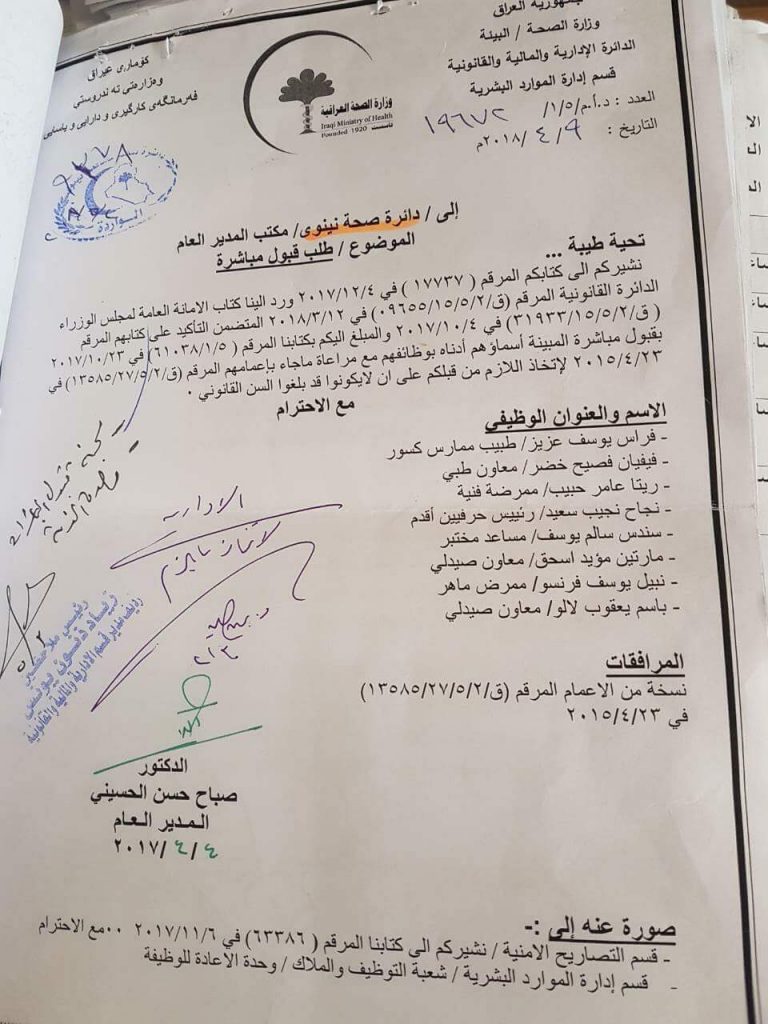 جمهورية العراق
وزارة الصحة / البيئة
الدائرة الإدارية والمالية والقانونية
قسم إدارة الموارد البشرية
العدد : د.أ.م/١/٥/ ١٩٦٧٢
التاريخ : ٩/ ٤/ ٢٠١٨م
كۆماری عیراق
وەزارەتی تەندروستی
فەرمانگەی کارگیری و دارایی و یاسایی
وزارة الصحة العراقية
Iraqi Ministry of Health
Founded 1920 تأسست
الواردة
إلى / دائرة صحة نينوى/ مكتب المدير العام
الموضوع / طلب قبول مباشرة
تحية طيبة ...
نشيركم الى كتابكم المرقم ( ١٧٧٣٧ ) في ٢٠١٧/١٢/٤ ورد الينا كتاب الامانة العامة لمجلس الوزراء
الدائرة القانونية المرقم (ق/٠٩٦٥٥/١٥/٥/٢) في ٢٠١٨/٣/١٢ المتضمن التأكيد على كتابهم المرقم
( ق/٣١٩٣٣/١٥/٥/٢) في ٢٠١٧/١٠/٤ والمبلغ اليكم بكتابنا المرقم ( ٦١٠٣٨/١/٥) في ٢٠١٧/١٠/٢٣
بقبول مباشرة المبينة أسماؤهم أدناه بوظائفهم مع مراعاة ماجاء بإعمامهم المرقم (ق/١٣٥٨٥/٢٧/٥/٢) في
٢٠١٥/٤/٢٣ لإتخاذ اللازم من قبلكم على ان لايكونوا قد بلغوا السن القانوني .
مع الاحترام
الاسم والعنوان الوظيفي
- فراس يوسف عزيز/ طبيب ممارس كسور
- فيفيان فصيح خضر/ معاون طبي
- ريتا عامر حبيب/ ممرضة فنية
- نجاح نجيب سعيد/ رئييس حرفيين أقدم
- سندس سالم يوسف/ مساعد مختبر
- مارتين مؤيد اسحق/ معاون صيدلي
- نبيل يوسف فرنسو/ ممرض ماهر
- باسم يعقوب لالو/ معاون صيدلي
الادارية
المرافقات
نسخة من الاعمام المرقم (ق/١٣٥٨٥/٢٧/٥/٢)
في ٢٠١٥/٤/٢٣
الدكتور
صباح حسن الحسيني
المدير العام
٤ / ٤ /٢٠١٧
صورة عنه إلى :-
- قسم التصاريح الامنية / نشيركم الى كتابنا المرقم ( ٦٣٣٨٦ ) في ٢٠١٧/١١/٦ ٠٠مع الاحترام
- قسم إدارة الموارد البشرية / شعبة التوظيف والملاك / وحدة الاعادة للوظيفة